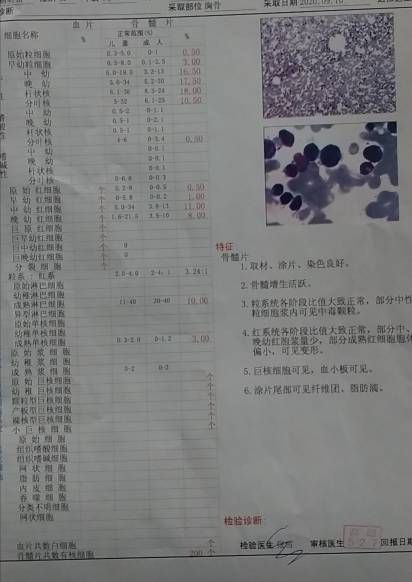 诊断
采取部位 胸骨
采取日期 2020.09.10
细胞名称
血片
骨髓片
%
正常范围(%)
%
儿童
成人
原始粒细胞 0.3-5.0 0-1 0.50
早幼粒细胞 0.5-8.0 0.1-2.5 3.00
中幼 3.2-13 16.50
晚幼 5.6-34 5.2-20 17.50
杆状核 6.1-36 8.5-24 18.00
分叶核 5-32 6.1-28 10.50
中幼 0.5-2 0-1.1
晚幼 0.5-1 0-2.1
杆状核 0.5-1 0-1.1
分叶核 4-6 0-3.4 0.50
中幼 0-0.1
晚幼 0-0.1
杆状核 0-0.1
分叶核 0-0.3
原始红细胞 个 0-0.5 0.50
早幼红细胞 个 1.00
中幼红细胞 个 11.00
晚幼红细胞 个 3.5-10 8.00
巨原红细胞 个
巨早幼红细胞 个
巨中幼红细胞 个 0
巨晚幼红细胞 个 0
分裂细胞 个
粒系：红系 2.0-4.0 2-4：1 3.24:1
原始淋巴细胞
幼稚淋巴细胞
成熟淋巴细胞 11-40 20-40 19.00
异型淋巴细胞
原始单核细胞
幼稚单核细胞
成熟单核细胞 0.3-2.0 0-1.2 3.00
原始浆细胞
幼稚浆细胞
成熟浆细胞 0-2 0-2
原始巨核细胞 个
幼稚巨核细胞 个
颗粒型巨核细胞 个
产板型巨核细胞 个
裸核型巨核细胞 个
小巨核细胞 个
原始细胞
组织嗜酸细胞
组织嗜碱细胞
网状细胞
脂肪细胞
内皮细胞
吞噬细胞
分类不明细胞
网状细胞
血片共数白细胞 个
骨髓片共数有核细胞 200 个
特征
骨髓片
1.取材、涂片、染色良好。
2.骨髓增生活跃。
3.粒系统各阶段比值大致正常，部分中性
粒细胞浆内可见中毒颗粒。
4.红系统各阶段比值大致正常，部分中、
晚幼红胞浆量少，部分成熟红细胞胞体
偏小，可见变形。
5.巨核细胞可见，血小板可见。
6.涂片尾部可见纤维团、脂肪滴。
检验诊断
检验医生
审核医生
回报日期